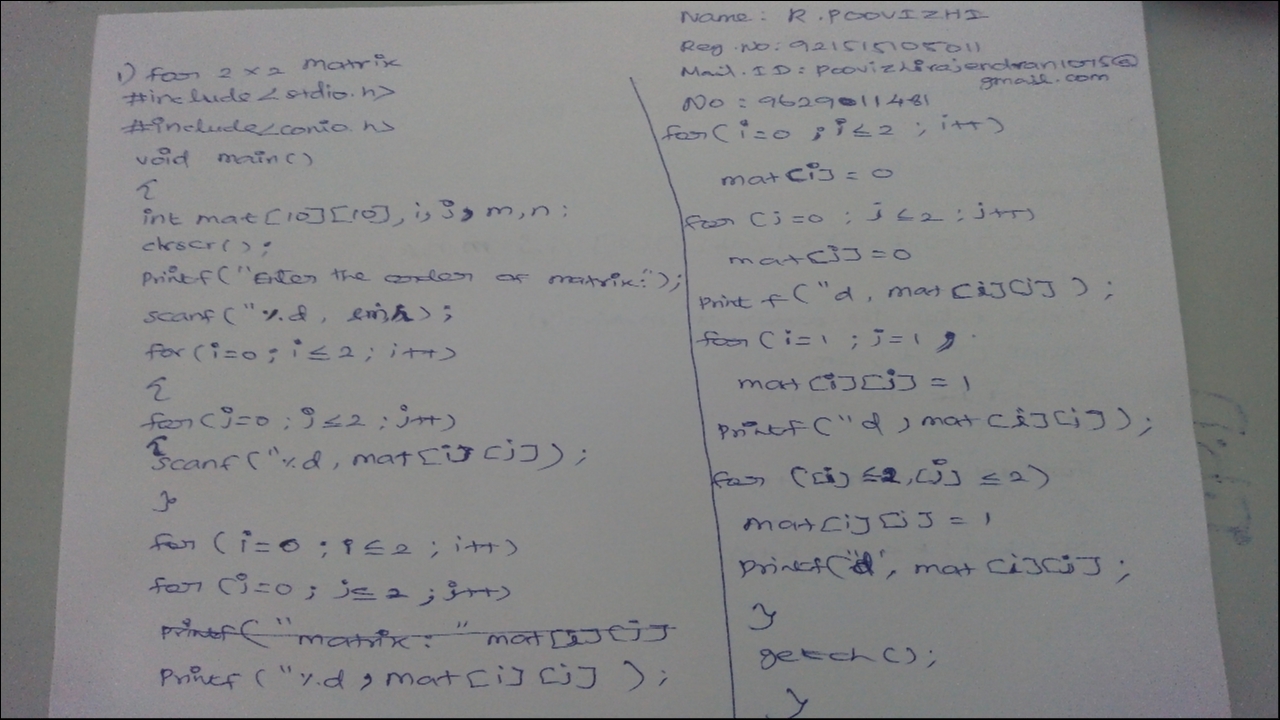 1) for 2 x 2 matrix
#include<stdio.h>
#include<conio.h>
void main()
{
int mat[10][10], i, j, m, n;
clrscr();
Printf("Enter the order of matrix:");
scanf("%d,
for(i=0; i≤2; i++)
{
for(j=0; j≤2; j++)
{
scanf("%d, mat[i][j]);
}
for(i=0; i≤2; i++)
for(j=0; j≤2; j++)
printf("matrix:" mat[i][j]
Printf("%d, mat[i][j]);
Name: R.POOVIZHI
Reg.No: 921515105011
Mail.ID: Poovizhirajendran1015@
gmail.com
No: 9629011481
for(i=0; i≤2; i++)
mat[i]=0
for(j=0; j≤2; j++)
mat[j]=0
Print f("d, mat[i][j]);
for(i=1; j=1,
mat[i][j]=1
Printf("d, mat[i][j]);
for([i]≤2,[j]≤2)
mat[i][j]=1
Printf("d', mat[i][j];
}
getch();
}